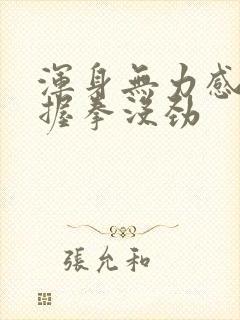 渾身無力感
握拳沒勁
張允和